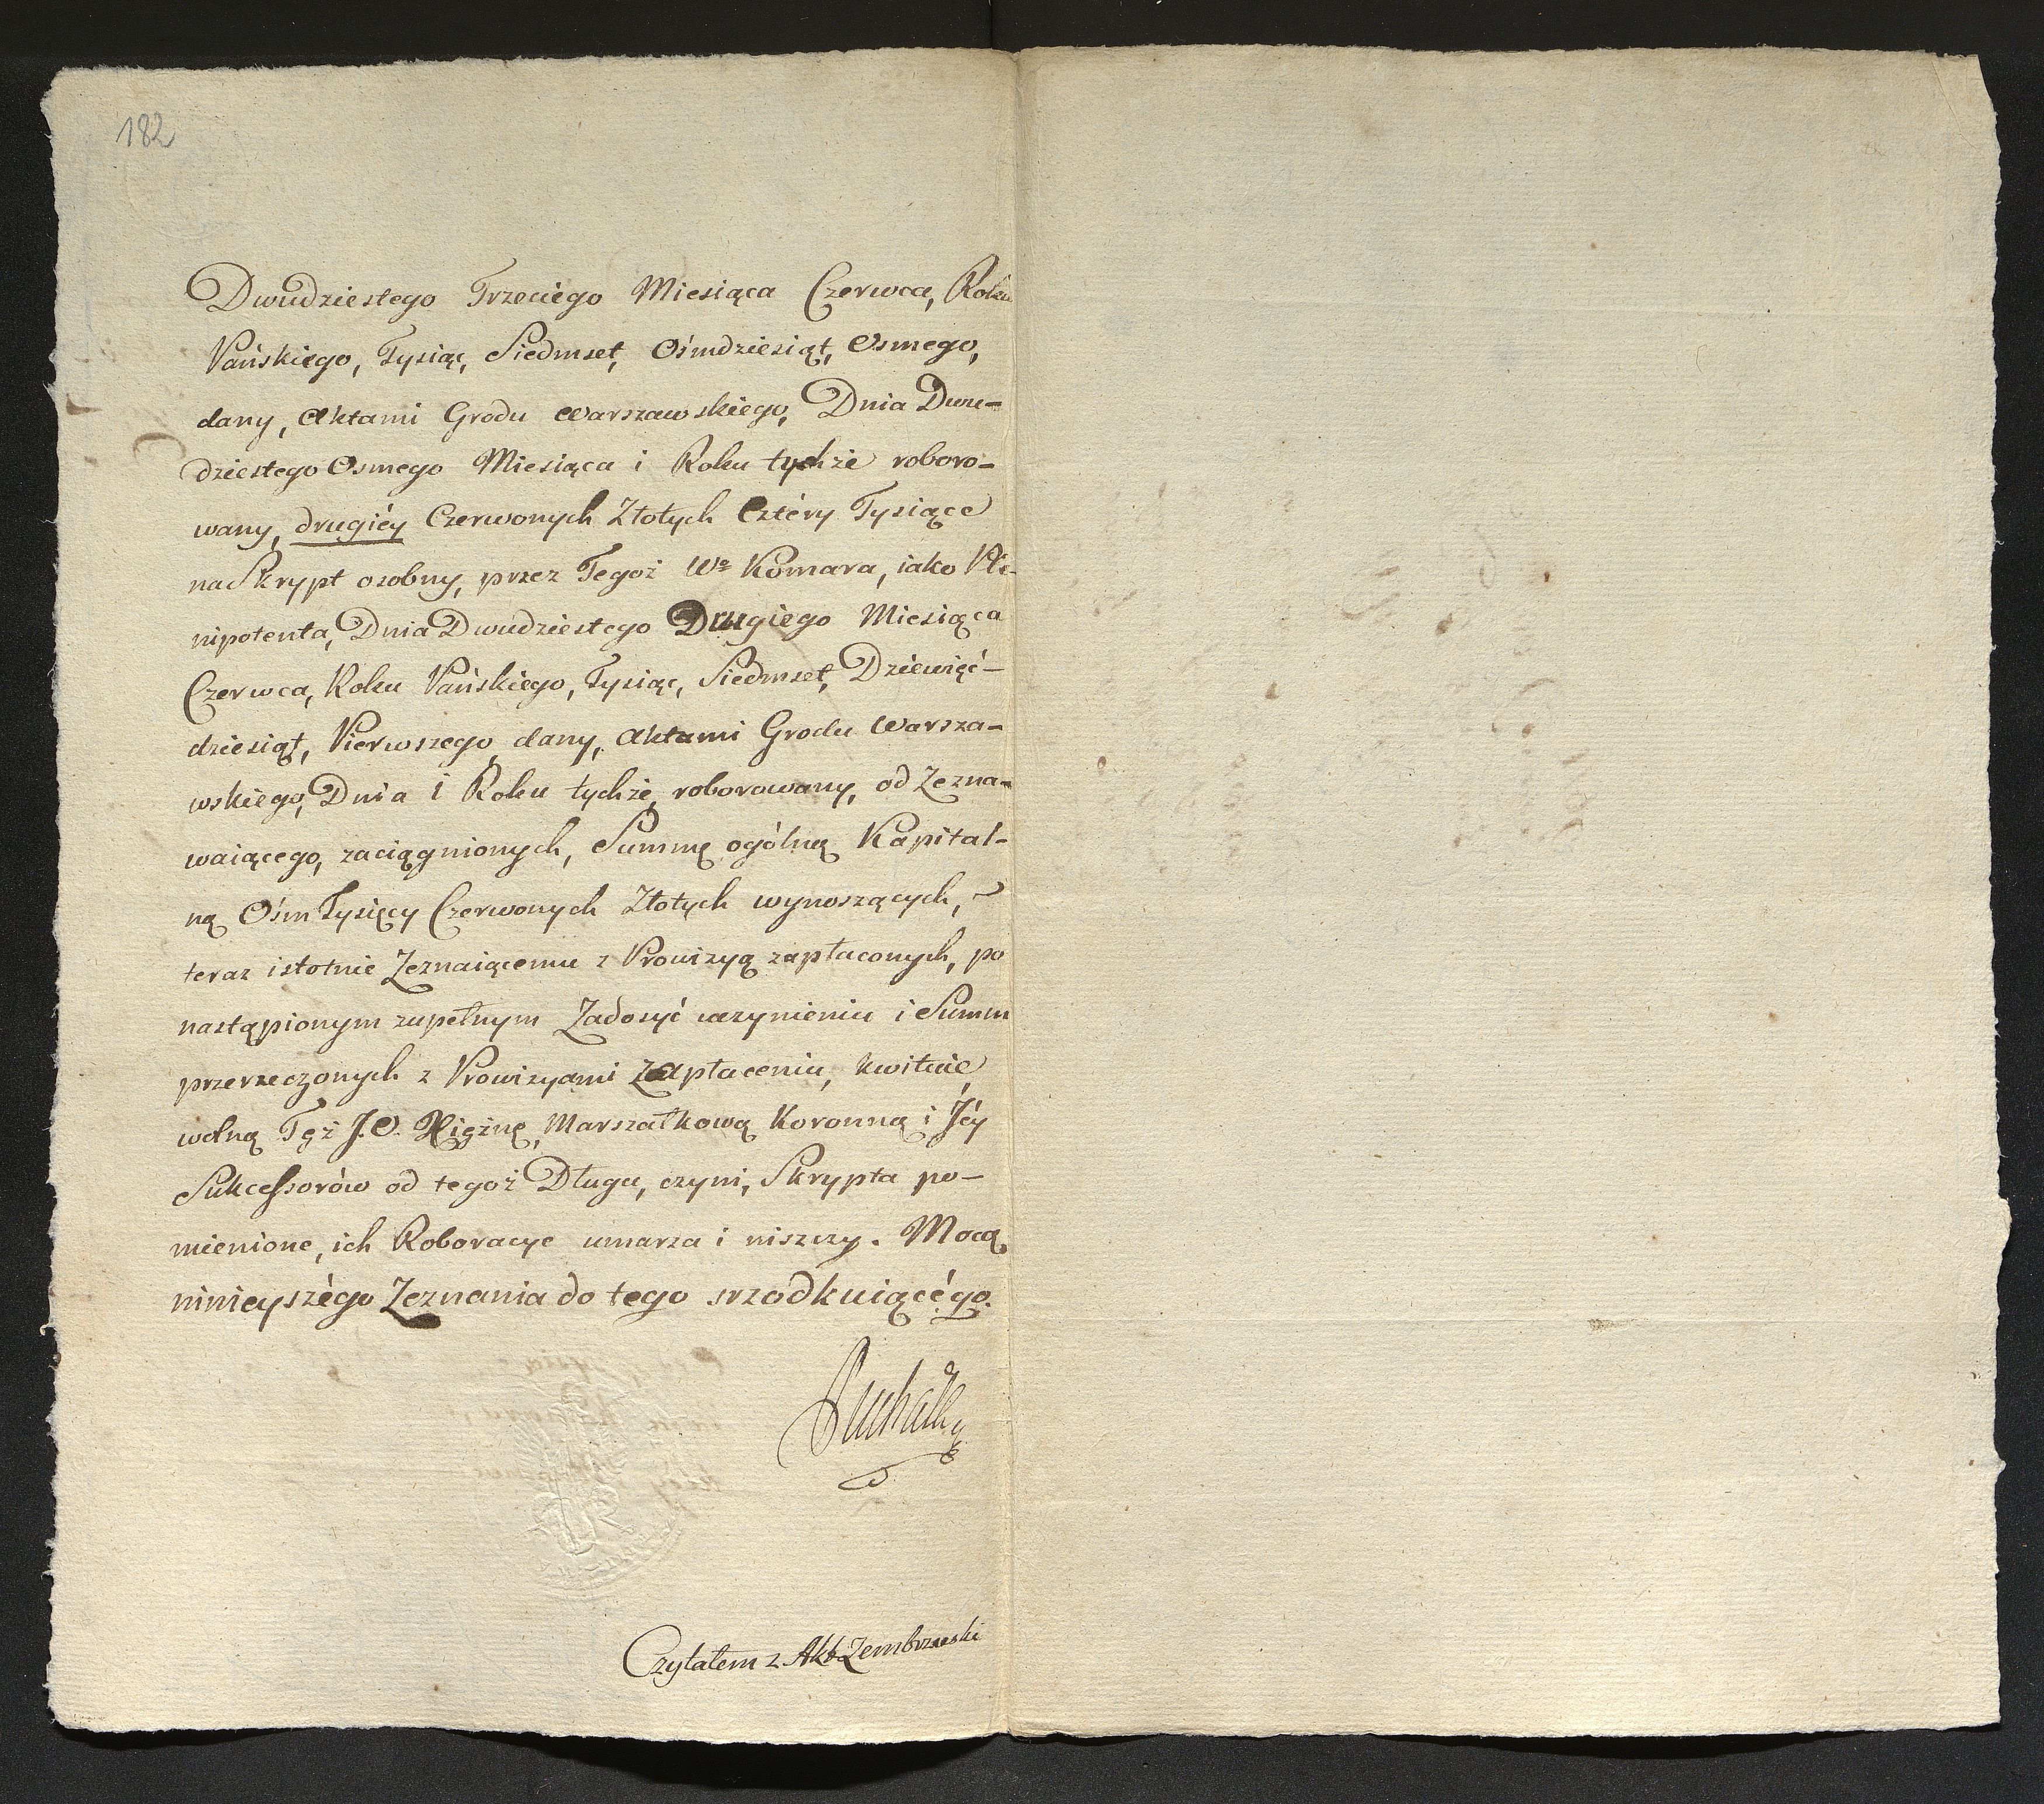 182
Dwudziestego Trzeciego Miesiąca Czerwca, Roku
Pańskiego, Tysiąc, Siedmset, Ośmdziesiąt, Osmego,
dany, Aktami Grodu Warszawskiego, Dnia Dwu-
dziestego Osmego Miesiąca i Roku tychże roboro-
wany, drugiéy Czerwonych Złotych Cztéry Tysiące
na Skrypt osobny, przez Tegoż Wo Komara, iako Ple-
nipotenta, Dnia Dwudziestego Drugiego Miesiąca
Czerwca, Roku Pańskiego, Tysiąc, Siedmset, Dziewięć-
dziesiąt, Pierwszego dany, Aktami Grodu Warsza-
wskiego, Dnia i Roku tychże, roborowany, od Zezna-
waiącego, zaciągnionych, Summę ogólną Kapital-
ną Ośm Tysięcy Czerwonych Złotych wynoszących,
teraz istotnie Zeznaiącemu z Prowizyą zapłaconych, po
nastąpionym zupełnym Zadosyć uczynieniu i Summ
przerzeczonych z Prowizyami Zapłaceniu, kwituie,
wolną Tęż J.O. Xiężnę, Marszałkową Koronną i Jéy
Sukcessorów od tegoż Długu, czyni, Skrypta po-
mienione, ich Roboracye umarza i niszczy. Mocą
ninieyszégo Zeznania do tego srzodkuiącégo.
Czytałem z Akt Zembrzuski